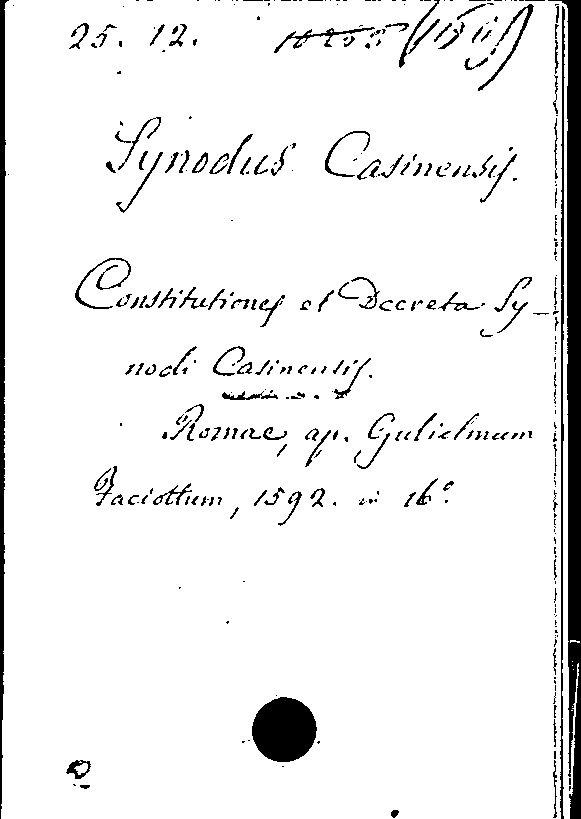 25. 12.
Synodus Casinensis.
Constitutiones et Decreta Sy-
nodi Casinensis.
Romae, ap. Gulielmum
Faciottum, 1592. in 16°.